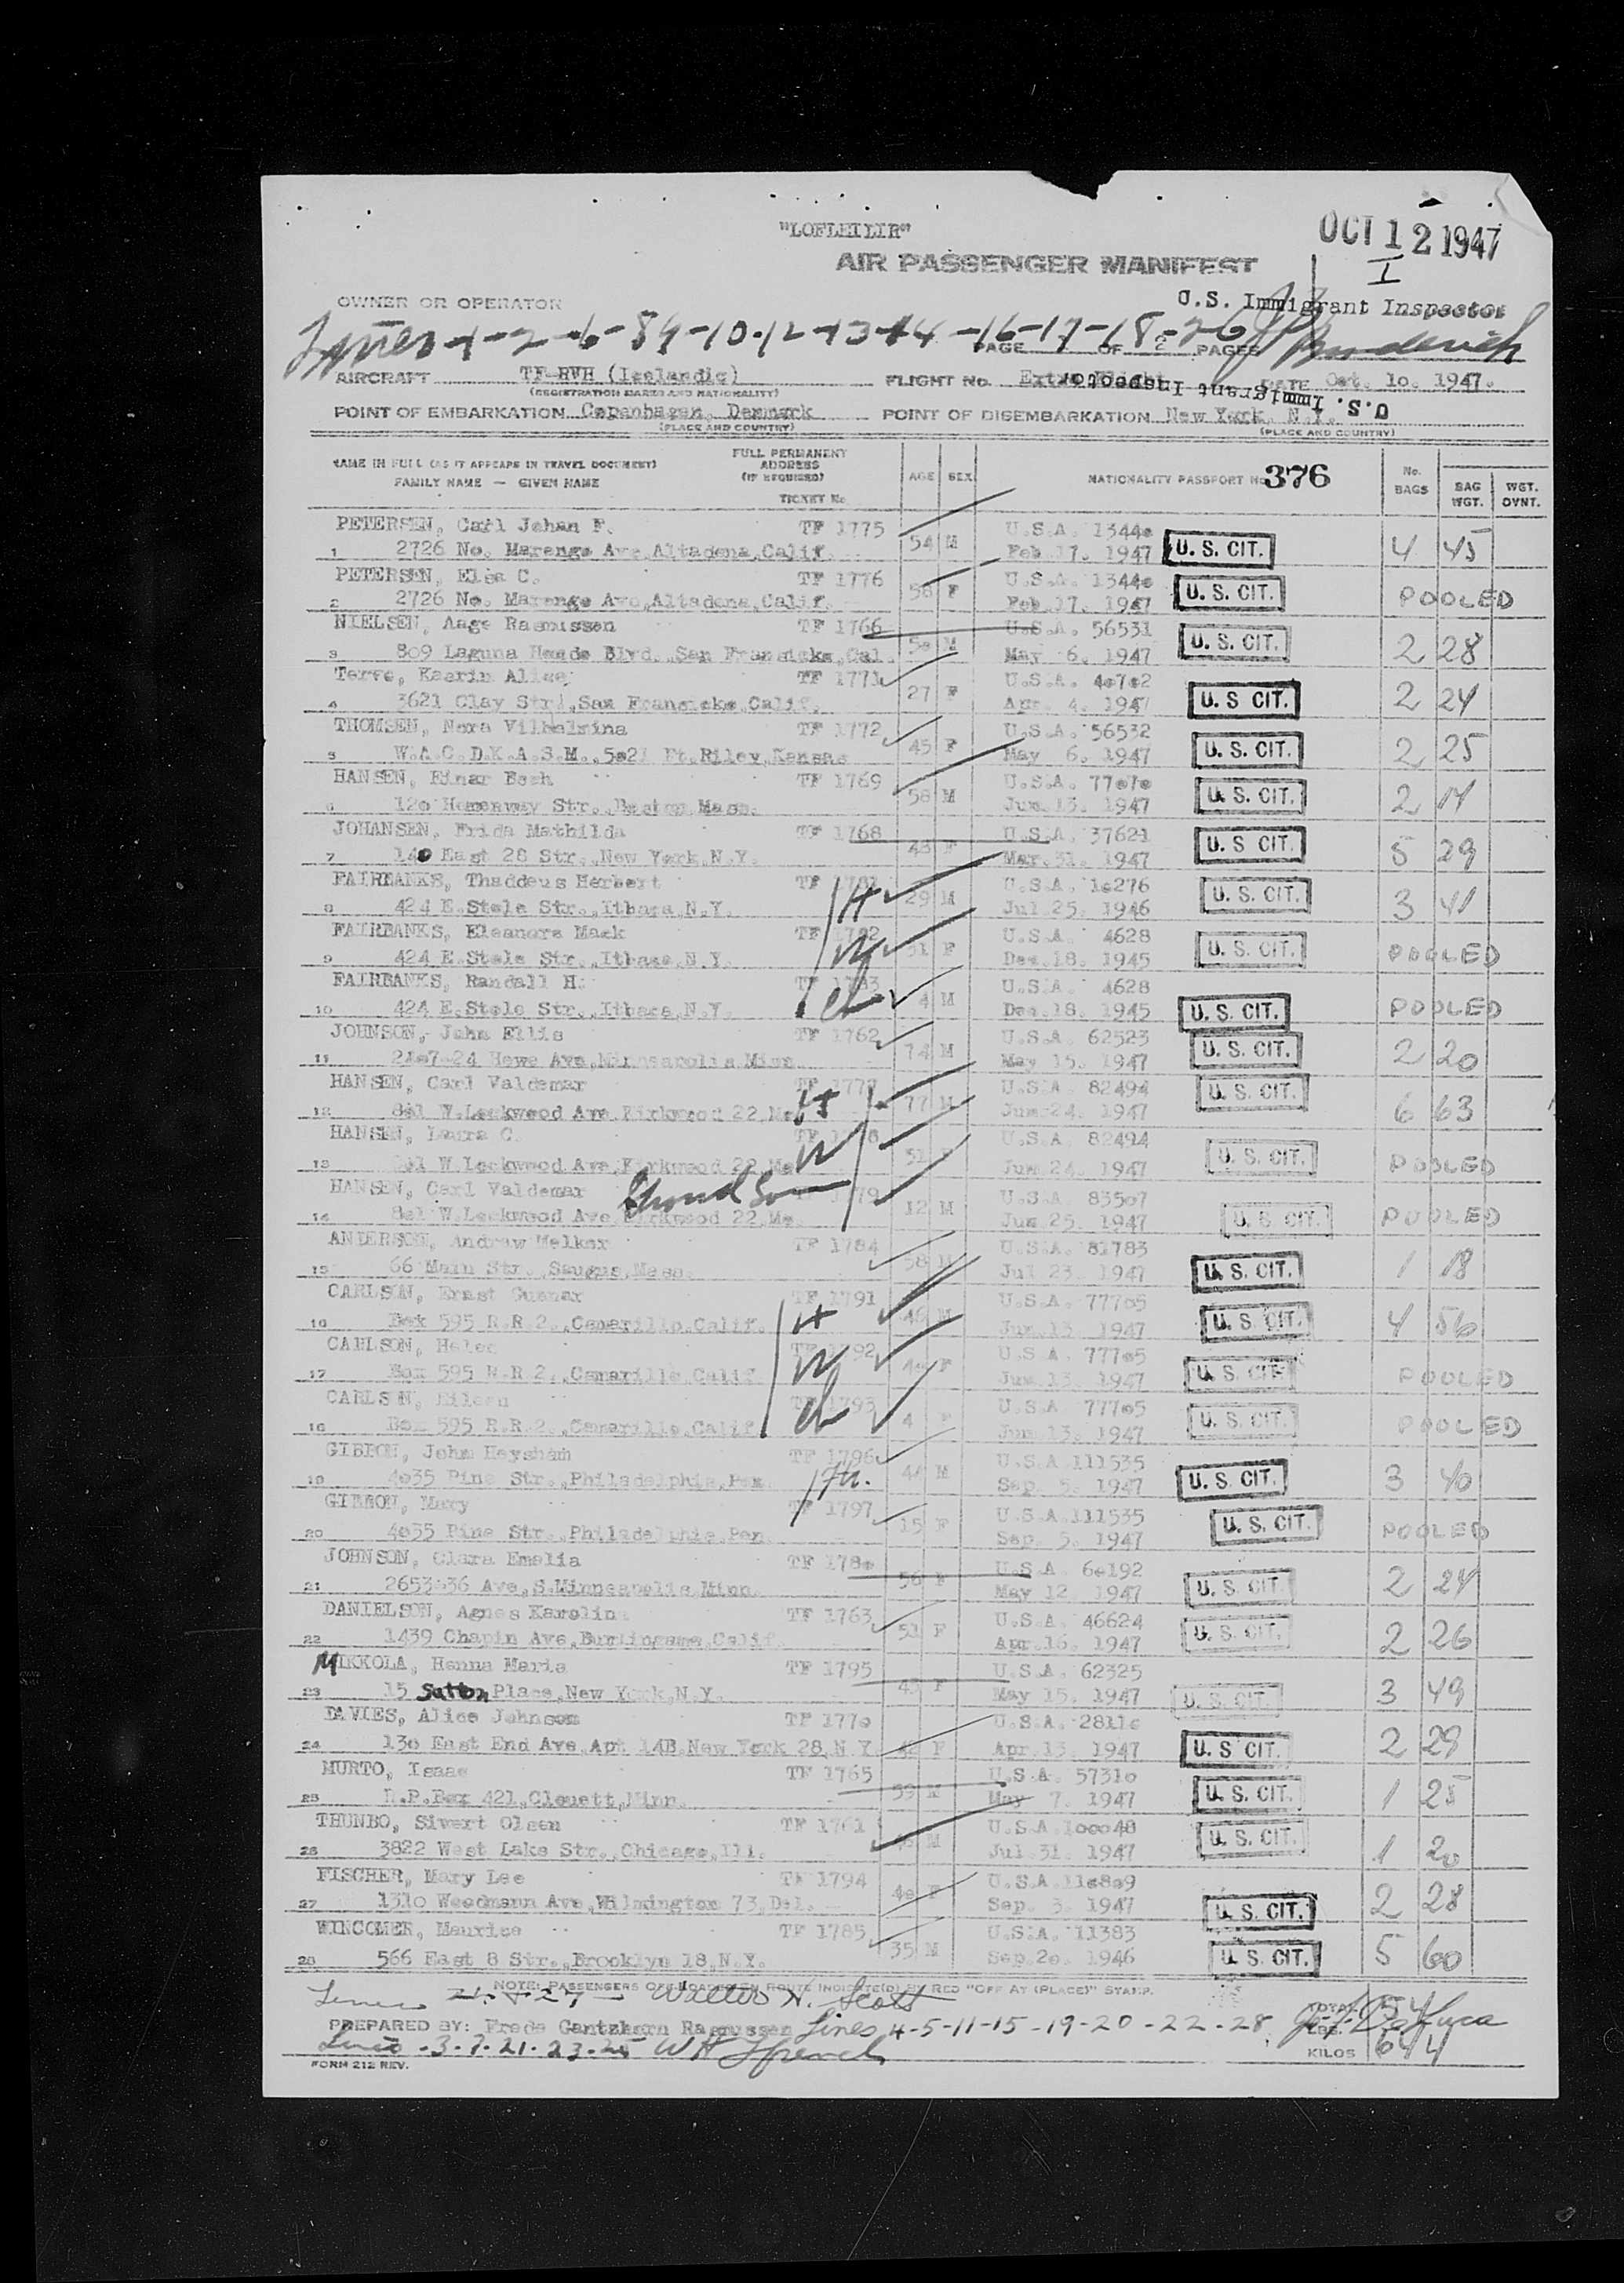 "LOFLEIDIR"
OCT 12 1947
I
AIR PASSENGER MANIFEST
OWNER OR OPERATOR
U.S. Immigrant Inspector
Lines 1-2-6-89-10-12-13-14-16-17-18-26
PAGE OF 2 PAGES
AIRCRAFT TF-RVH (Icelandic) FLIGHT No. Extra Flight DATE Oct. 10. 1947.
(REGISTRATION MARKS AND NATIONALITY)
U.S. Immigrant Inspector
POINT OF EMBARKATION Copenhagen, Denmark POINT OF DISEMBARKATION New York, N.Y.
(PLACE AND COUNTRY) (PLACE AND COUNTRY)
NAME IN FULL (AS IT APPEARS IN TRAVEL DOCUMENT) FAMILY NAME — GIVEN NAME FULL PERMANENT ADDRESS (IF REQUIRED) TICKET No. AGE SEX NATIONALITY PASSPORT No. 376 No. BAGS BAG WGT. WGT. OVNT.
PETERSEN, Carl Johan F. TF 1775 U.S.A. 1344o
1 2726 No. Marengo Ave,Altadena,Calif. 54 M Feb.17. 1947 U. S. CIT. 4 45
PETERSEN, Elsa C. TF 1776 U.S.A. 1344o
2 2726 No. Marengo Ave,Altadena,Calif. 58 F Feb.17. 1947 U. S. CIT. POOLED
NIELSEN, Aage Rasmussen TF 1766 U.S.A. 56531
3 809 Laguna Honda Blvd.,San Fransicko,Cal. 5o M May 6. 1947 U. S. CIT. 2 28
Terve, Kaarin Alice TF 1771 U.S.A. 4o7o2
4 3621 Clay Str.,San Fransicko,Calif. 27 F Apr. 4. 1947 U. S CIT. 2 24
THOMSEN, Nora Vilhelmina TF 1772 U.S.A. 56532
5 W.A.C.D.K.A.S.M. 5o21 Ft.Riley,Kansas 45 F May 6. 1947 U. S. CIT. 2 25
HANSEN, Einar Bech TF 1769 U.S.A. 77o7o
6 12o Hemenway Str.,Boston,Mass. 58 M Jun.13. 1947 U. S. CIT. 2 14
JOHANSEN, Frida Mathilda TF 1768 U.S.A. 37621
7 140 East 28 Str.,New York,N.Y. 43 F Mar.31. 1947 U. S CIT. 5 29
FAIRBANKS, Thaddeus Herbert TF H U.S.A. 1o276
8 424 E.Stole Str.,Ithaca,N.Y. 29 M Jul.25. 1946 U. S. CIT. 3 41
FAIRBANKS, Eleanore Mack TF W U.S.A. 4628
9 424 E.Stole Str.,Ithaca,N.Y. 31 F Dec.18. 1945 U. S. CIT. POOLED
FAIRBANKS, Randall H. ch U.S.A. 4628
10 424 E.Stole Str.,Ithaca,N.Y. 4 M Dec.18. 1945 U. S. CIT. POOLED
JOHNSON, John Ellis TF 1762 U.S.A. 62523
11 21o7-24 Howe Ave,Minneapolis Minn 74 M May 15. 1947 U. S. CIT. 2 20
HANSEN, Carl Valdemar TF 1777 H U.S.A. 82494
12 8o1 W.Lockwood Ave,Kirkwood 22,Mo. 77 M Jun.24. 1947 U. S. CIT. 6 63
HANSEN, Laura C. W U.S.A. 82494
13 8o1 W.Lockwood Ave,Kirkwood 22,Mo. 51 F Jun.24. 1947 U. S. CIT. POOLED
HANSEN, Carl Valdemar Grand Son 1779 U.S.A. 835o7
14 8o1 W.Lockwood Ave,Kirkwood 22,Mo. 12 M Jun.25. 1947 U. S. CIT. POOLED
ANDERSON, Andrew Melker TF 1784 U.S.A. 81783
15 66 Main Str.,Saugus,Mass. 58 M Jul 23. 1947 U. S. CIT. 1 18
CARLSON, Ernst Gunnar TF 1791 H U.S.A. 777o5
16 Box 595 R.R.2.,Camarillo,Calif. 46 M Jun.13 1947 U. S. CIT. 4 56
CARLSON, Helen W U.S.A. 777o5
17 Box 595 R.R.2.,Camarillo,Calif F Jun.13. 1947 U. S CIT. POOLED
CARLSON, Eileen TF 1793 ch U.S.A. 777o5
18 Box 595 R.R.2.,Camarillo,Calif 4 F Jun.13. 1947 U. S. CIT. POOLED
GIBBON, John Heysham TF 1796 U.S.A.111535
19 4o35 Pine Str.,Philadelphia,Pen. 44 M Sep. 5. 1947 U. S. CIT. 3 40
GIBBON, Mary TF 1797 U.S.A.111535
20 4o35 Pine Str.,Philadelphia,Pen. 15 F Sep. 5. 1947 U. S. CIT. POOLED
JOHNSON, Clara Emelia TF 178o U.S.A. 6o192
21 2653-36 Ave,S.Minneapolis,Minn. 56 F May 12 1947 U. S. CIT. 2 24
DANIELSON, Agnes Karolin TF 1763 U.S.A. 46624
22 1439 Chapin Ave,Burlingame,Calif. 51 F Apr.16. 1947 U. S. CIT. 2 26
MIKKOLA, Hanna Maria TF 1795 U.S.A. 62325
23 15 Sutton Place,New York,N.Y. F May 15. 1947 U. S. CIT. 3 49
DAVIES, Alice Johnson TF 177o U.S.A. 2811o
24 13o East End Ave,Apt 14B,New York 28,N.Y. F Apr.13. 1947 U. S CIT. 2 29
MURTO, Isaac TF 1765 U.S.A. 5731o
25 R.P.Box 421,Clouett,Minn. 59 M May 7. 1947 U. S. CIT. 1 25
THUNBO, Sivert Olsen TF 1761 U.S.A.1ooo48
26 3822 West Lake Str.,Chicago,Ill. M Jul.31. 1947 U. S. CIT. 1 20
FISCHER, Mary Lee TF 1794 U.S.A.11o8o9
27 131o Woodmann Ave,Wilmington 73,Del. 4o F Sep. 3. 1947 U. S. CIT. 2 28
WINCOMER, Maurice TF 1785 U.S.A. 11383
28 566 East 8 Str.,Brooklyn 18,N.Y. 35 M Sep.2o. 1946 U. S. CIT. 5 60
NOTE: PASSENGERS OFF-LOADED EN ROUTE INDICATE(D) BY RED "OFF AT (PLACE)" STAMP.
Lines 24-27 Walter H. Scott
PREPARED BY: Frode Gantzhorn Rasmussen Lines 4-5-11-15-19-20-22-28 DeLuca
TOTAL 54
LBS.
Lines 3.7.21.23.25 WH French
KILOS 644
FORM 212 REV.